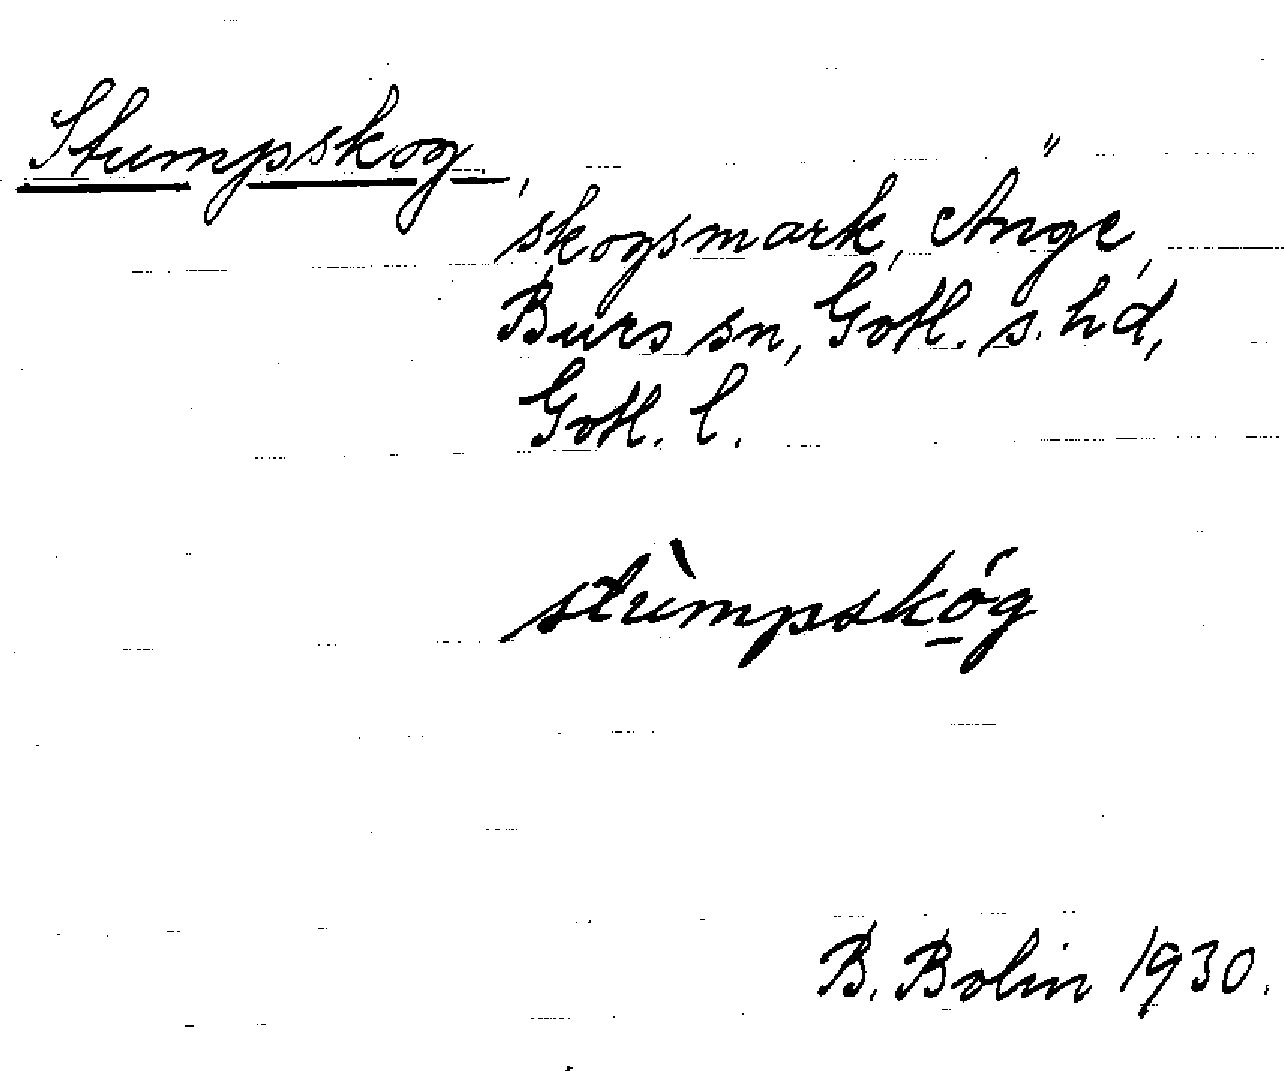 Stumpskog,
skogsmark, Änge,
Burs sn, Gotl. s. hd,
Gotl. l.
stùmpskó̲g
B. Bolin 1930.